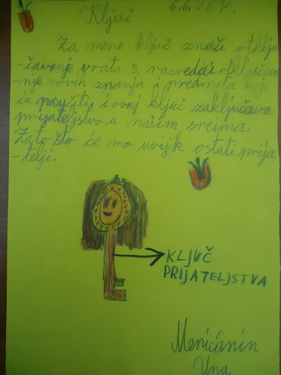 Ključ
Za mene ključ znači otklju
-čavanje vrata 5. razreda i otključava
-nje novih znanja i predmeta koje
naučiti i ovaj ključ zaključava
prijateljstvo u našim srcima.
Zato što će mo uvijek ostati prija
-telji.
KLJUČ
PRIJATELJSTVA
Menićanin
Una